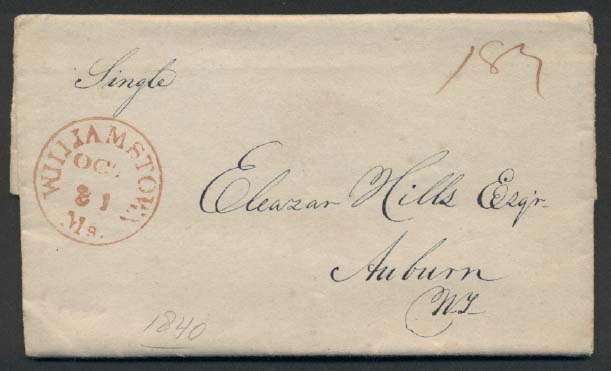 Single
18¾
WILLIAMSTOWN
OCT
31
Ms.
Eleazar Hills Esqr.
Auburn
NY
1840